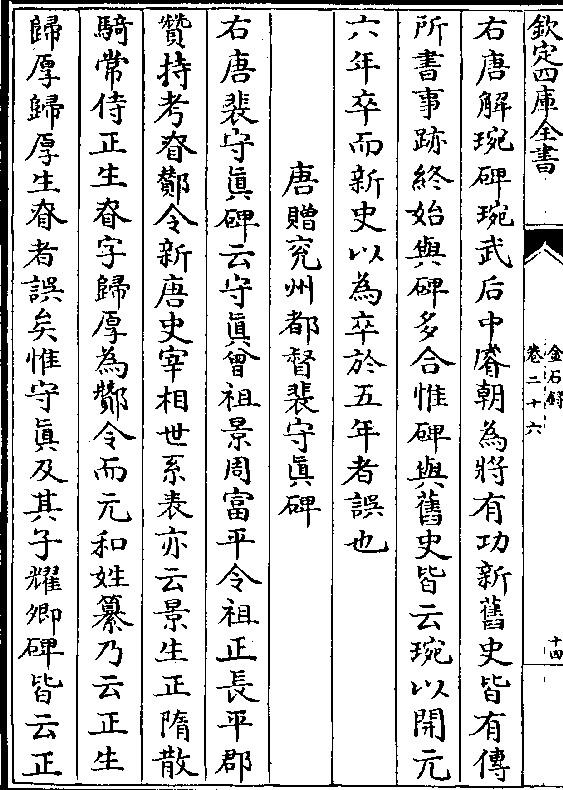 欽定四庫全書
金石錄
卷二十六
十四
右唐解琬碑琬武后中睿朝為將有功新舊史皆有傳
所書事跡終始與碑多合惟碑與舊史皆云琬以開元
六年卒而新史以為卒於五年者誤也
唐贈兖州都督裴守眞碑
右唐裴守眞碑云守眞曾祖景周富平令祖正長平郡
贊持考眘酇令新唐史宰相世系表亦云景生正隋散
騎常侍正生眘字歸厚為酇令而元和姓纂乃云正生
歸厚歸厚生眘者誤矣惟守眞及其子耀卿碑皆云正